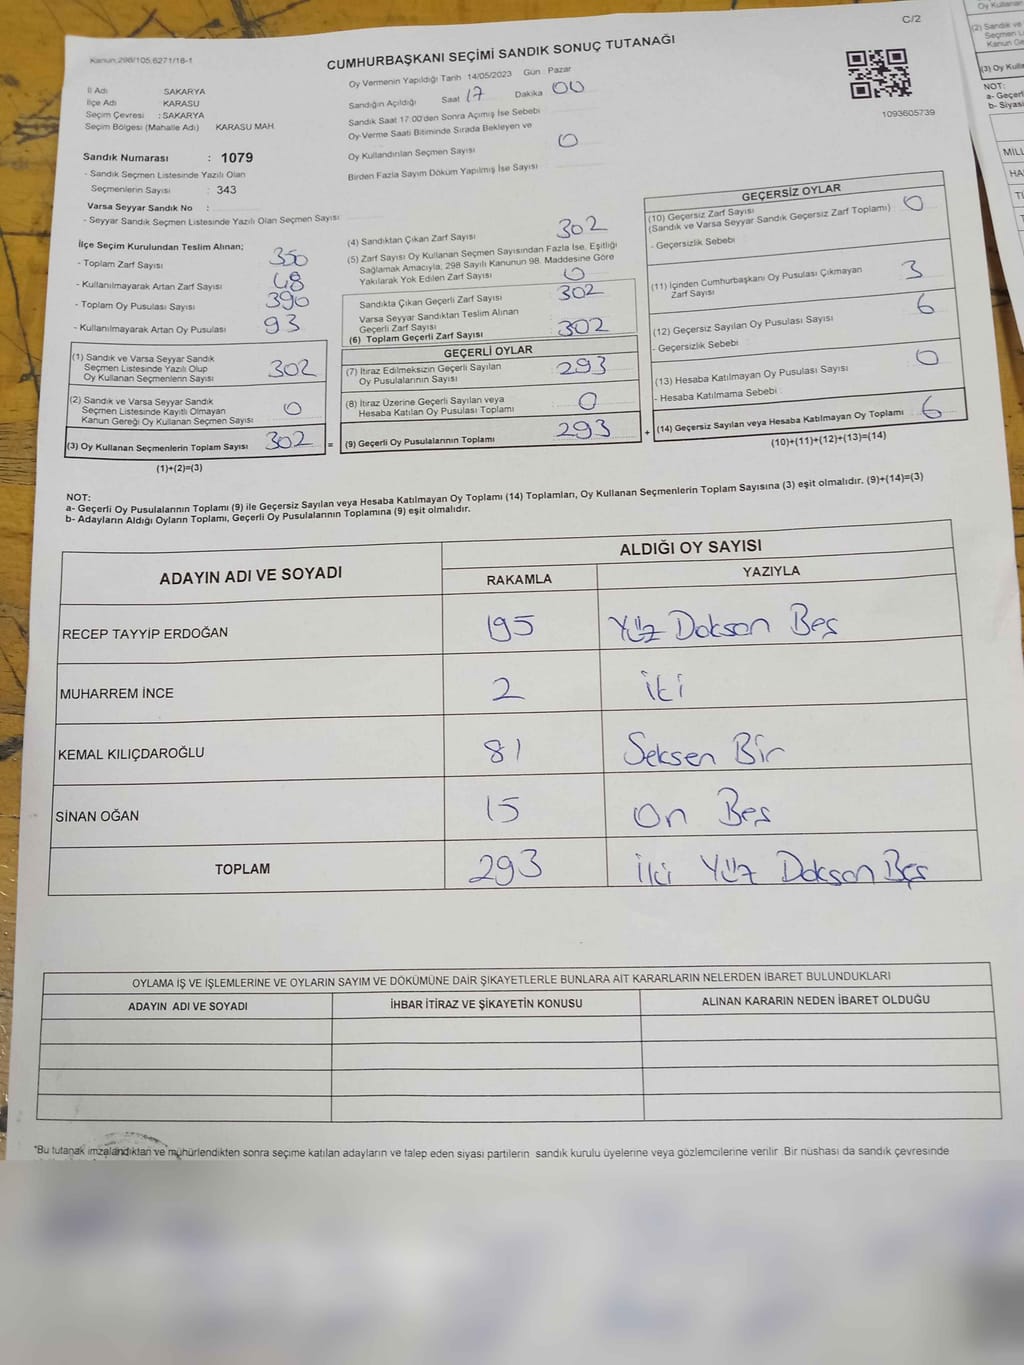 C/2
Kanun:298/105,6271/18-1
CUMHURBAŞKANI SEÇİMİ SANDIK SONUÇ TUTANAĞI
İl Adı SAKARYA
İlçe Adı KARASU
Seçim Çevresi : SAKARYA
Seçim Bölgesi (Mahalle Adı) KARASU MAH.
Oy Vermenin Yapıldığı Tarih 14/05/2023 Gün : Pazar
Sandığın Açıldığı Saat 17 Dakika 00
Sandık Saat 17:00'den Sonra Açımış İse Sebebi
Oy Verme Saati Bitiminde Sırada Bekleyen ve
Oy Kullandırılan Seçmen Sayısı 0
Birden Fazla Sayım Döküm Yapılmış İse Sayısı
1093605739
Sandık Numarası : 1079
- Sandık Seçmen Listesinde Yazılı Olan
Seçmenlerin Sayısı : 343
Varsa Seyyar Sandık No :
- Seyyar Sandık Seçmen Listesinde Yazılı Olan Seçmen Sayısı
İlçe Seçim Kurulundan Teslim Alınan;
- Toplam Zarf Sayısı : 350
- Kullanılmayarak Artan Zarf Sayısı : 48
- Toplam Oy Pusulası Sayısı : 390
- Kullanılmayarak Artan Oy Pusulası : 93
(1) Sandık ve Varsa Seyyar Sandık
Seçmen Listesinde Yazılı Olup
Oy Kullanan Seçmenlerin Sayısı : 302
(2) Sandık ve Varsa Seyyar Sandık
Seçmen Listesinde Kayıtlı Olmayan
Kanun Gereği Oy Kullanan Seçmen Sayısı : 0
(3) Oy Kullanan Seçmenlerin Toplam Sayısı : 302 =
(1)+(2)=(3)
(4) Sandıktan Çıkan Zarf Sayısı : 302
(5) Zarf Sayısı Oy Kullanan Seçmen Sayısından Fazla İse, Eşitliği
Sağlamak Amacıyla, 298 Sayılı Kanunun 98. Maddesine Göre
Yakılarak Yok Edilen Zarf Sayısı : 0
Sandıkta Çıkan Geçerli Zarf Sayısı : 302
Varsa Seyyar Sandıktan Teslim Alınan
Geçerli Zarf Sayısı :
(6) Toplam Geçerli Zarf Sayısı : 302
GEÇERLİ OYLAR
(7) İtiraz Edilmeksizin Geçerli Sayılan
Oy Pusulalarının Sayısı : 293
(8) İtiraz Üzerine Geçerli Sayılan veya
Hesaba Katılan Oy Pusulası Toplamı : 0
(9) Geçerli Oy Pusulalarının Toplamı : 293 +
GEÇERSİZ OYLAR
(10) Geçersiz Zarf Sayısı
(Sandık ve Varsa Seyyar Sandık Geçersiz Zarf Toplamı) : 0
- Geçersizlik Sebebi
(11) İçinden Cumhurbaşkanı Oy Pusulası Çıkmayan
Zarf Sayısı : 3
(12) Geçersiz Sayılan Oy Pusulası Sayısı : 6
- Geçersizlik Sebebi :
(13) Hesaba Katılmayan Oy Pusulası Sayısı : 0
- Hesaba Katılmama Sebebi :
(14) Geçersiz Sayılan veya Hesaba Katılmayan Oy Toplamı : 6
(10)+(11)+(12)+(13)=(14)
NOT:
a- Geçerli Oy Pusulalarının Toplamı (9) ile Geçersiz Sayılan veya Hesaba Katılmayan Oy Toplamı (14) Toplamları, Oy Kullanan Seçmenlerin Toplam Sayısına (3) eşit olmalıdır. (9)+(14)=(3)
b- Adayların Aldığı Oyların Toplamı, Geçerli Oy Pusulalarının Toplamına (9) eşit olmalıdır.
ADAYIN ADI VE SOYADI ALDIĞI OY SAYISI
RAKAMLA YAZIYLA
RECEP TAYYİP ERDOĞAN 195 Yüz Doksan Beş
MUHARREM İNCE 2 iki
KEMAL KILIÇDAROĞLU 81 Seksen Bir
SİNAN OĞAN 15 On Beş
TOPLAM 293 iki Yüz Doksan Beş
OYLAMA İŞ VE İŞLEMLERİNE VE OYLARIN SAYIM VE DÖKÜMÜNE DAİR ŞİKAYETLERLE BUNLARA AİT KARARLARIN NELERDEN İBARET BULUNDUKLARI
ADAYIN ADI VE SOYADI İHBAR İTİRAZ VE ŞİKAYETİN KONUSU ALINAN KARARIN NEDEN İBARET OLDUĞU
*Bu tutanak imzalandıktan ve mühürlendikten sonra seçime katılan adayların ve talep eden siyasi partilerin sandık kurulu üyelerine veya gözlemcilerine verilir. Bir nüshası da sandık çevresinde
Oy Kullanan
(2) Sandık ve
Seçmen
Kanun Ge
(3) Oy Kulla
NOT:
a- Geçerl
b- Siyasi
MİLL